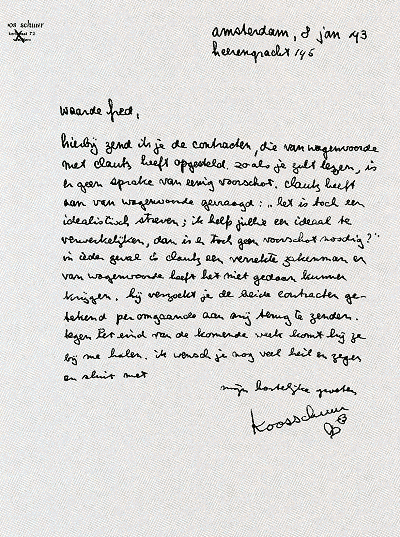 amsterdam, 8 jan 43
heerengracht 145
waarde fred,
hierbij zend ik je de contracten, die van wagenvoorde
met clautz heeft opgesteld. zoals je zult lezen, is
er geen sprake van eenig voorschot. clautz heeft
aan van wagenvoorde gevraagd: „het is toch een
idealistisch streven; ik help jullie een ideaal te
verwerkelijken, dan is er toch geen voorschot noodig?"
in ieder geval is clautz een verrekte zakenman en
van wagenvoorde heeft het niet gedaan kunnen
krijgen. hij verzoekt je de beide contracten ge-
teekend per omgaande aan mij terug te zenden.
tegen het eind van de komende week komt hij ze
bij me halen. ik wensch je nog veel heil en zegen
en sluit met
mijn hartelijke groeten
Koos Schuur